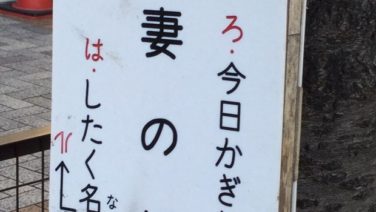 ろ・今日かぎ
妻の
は・したく名
な